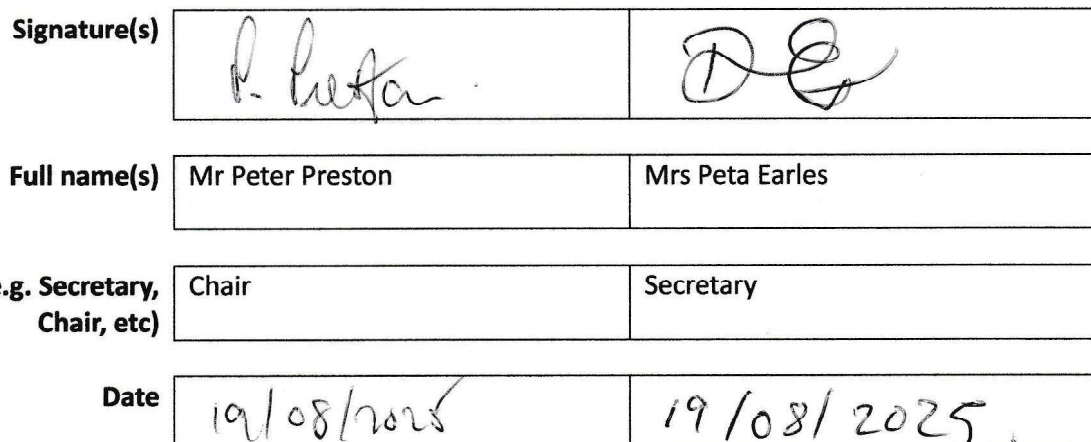 Signature(s) P. Preston
Full name(s) Mr Peter Preston Mrs Peta Earles
e.g. Secretary, Chair Secretary
Chair, etc)
Date 19/08/2025 19/08/2025